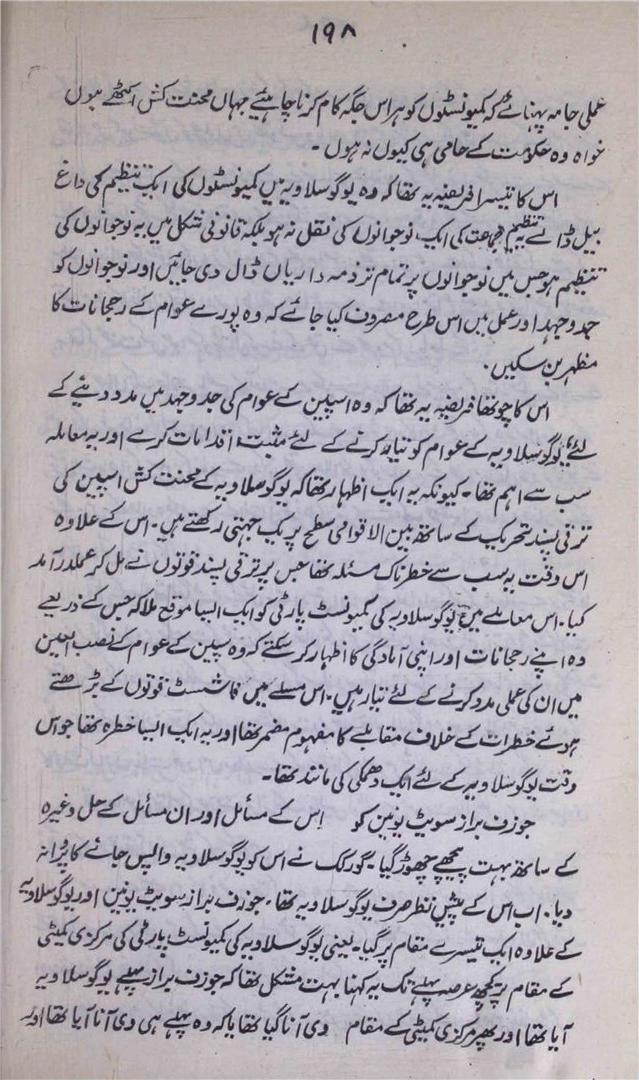 ۱۹۸
عملی جامہ پہنائے کہ کمیونسٹوں کو ہر اس جگہ کام کرنا چاہئیے جہاں محنت کش اکٹھے ہوں
خواہ وہ حکومت کے حامی ہی کیوں نہ ہوں ۔
اس کا تیسرا فریضہ یہ تھا کہ وہ یوگوسلاویہ میں کمیونسٹوں کی ایک تنظیم کی داغ
بیل ڈالے یہ تنظیم جماعت کی ایک نوجوانوں کی نقل نہ ہو بلکہ قانونی شکل میں یہ نوجوانوں کی
تنظیم ہو جس میں نوجوانوں پر تمام تر ذمہ داریاں ڈال دی جائیں اور نوجوانوں کو
جدوجہد اور عمل میں اس طرح مصروف کیا جائے کہ وہ پورے عوام کے رجحانات کا
مظہر بن سکیں ۔
اس کا چوتھا فریضہ یہ تھا کہ وہ اسپین کے عوام کی جدوجہد میں مدد دینے کے
لئے یوگوسلاویہ کے عوام کو تیار کرنے کے لئے مثبت اقدامات کرے اور یہ معاملہ
سب سے اہم تھا ۔ کیونکہ یہ ایک اظہار تھا کہ یوگوصلاویہ کے محنت کش اسپین کی
ترقی پسند تحریک کے ساتھ بین الاقوامی سطح پر یک جہتی رکھتے ہیں ۔ اس کے علاوہ
اس وقت یہ سب سے خطرناک مسئلہ تھا جس پر ترقی پسند قوتوں نے مل کر عملدرآمد
کیا ۔ اس معاملے میں یوگوسلاویہ کی کمیونسٹ پارٹی کو ایک ایسا موقع ملا کہ جس کے ذریعے
وہ اپنے رجحانات اور اپنی آمادگی کا اظہار کر سکتے کہ وہ سپین کے عوام کے نصب العین
میں ان کی عملی مدد کرنے کے لئے تیار ہیں ۔ اس مسلے میں فاشسٹ قوتوں کے بڑھتے
ہوئے خطرات کے خلاف مقابلے کا مفہوم مضمر تھا اور یہ ایک ایسا خطرہ تھا جو اس
وقت یوگوسلاویہ کے لئے ایک دھمکی کی مانند تھا ۔
جوزف براز سویٹ یونین کو اس کے مسائل اور ان مسائل کے حل وغیرہ
کے ساتھ بہت پیچھے چھوڑ گیا ۔ گورکک نے اس کو یوگوسلاویہ واپس جانے کا پروانہ
دیا ۔ اب اس کے پیش نظر صرف یوگوسلاویہ تھا ۔ جوزف براز سویٹ یونین اور یوگوسلاویہ
کے علاوہ ایک تیسرے مقام پر گیا ۔ یعنی یوگوسلاویہ کی کمیونسٹ پارٹی کی مرکزی کمیٹی
کے مقام پر کچھ عرصہ پہلے تک یہ کہنا بہت مشکل تھا کہ جوزف براز پہلے یوگوسلاویہ
آیا تھا اور پھر مرکزی کمیٹی کے مقام وی آنا گیا تھا یا کہ وہ پہلے ہی وی آنا آیا تھا اور